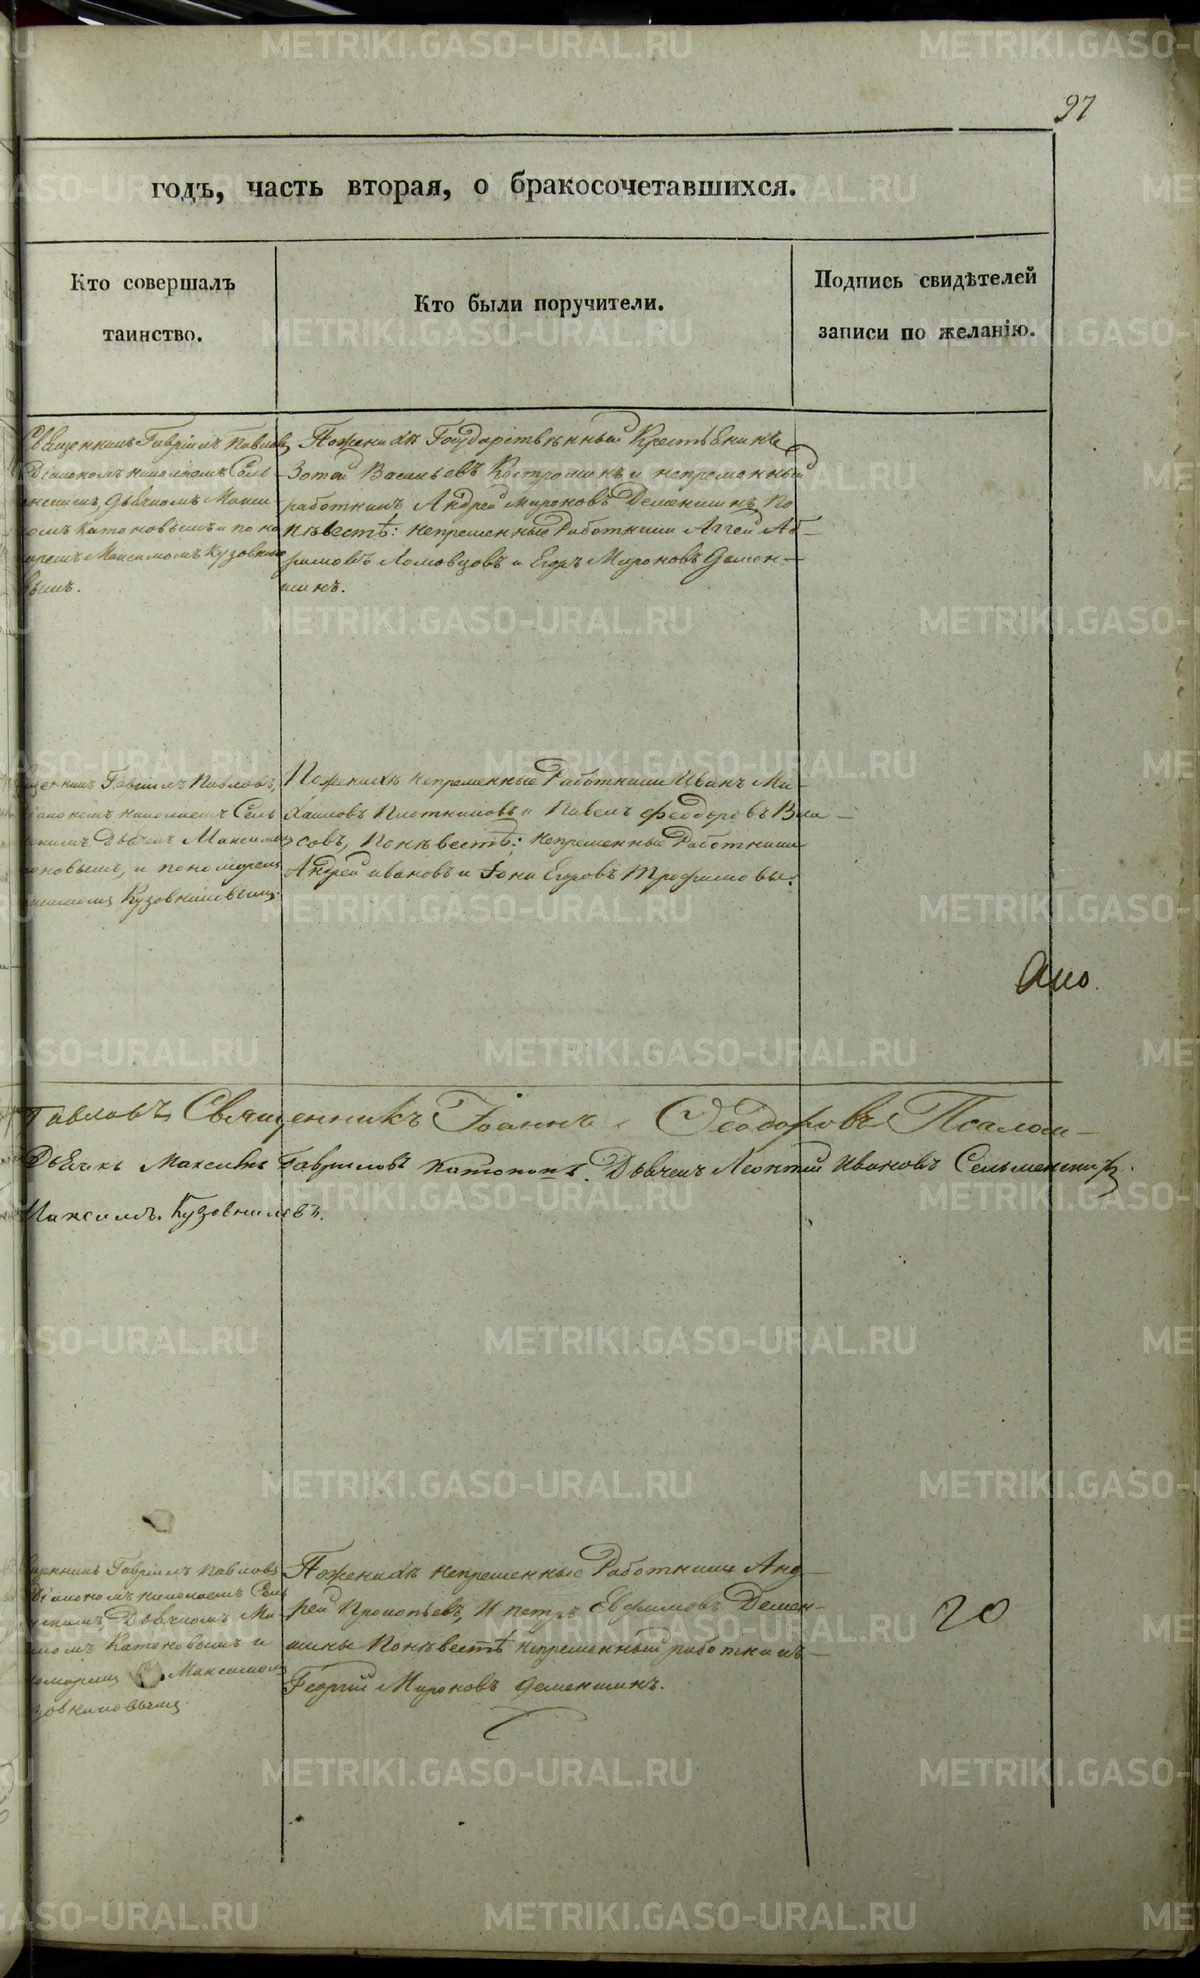 97
годъ, часть вторая, о бракосочетавшихся.
Кто совершалъ
таинство.
Кто были поручители.
Подпись свидѣтелей
записи по желанію.
Священникъ Гавріилъ Павловъ
Діакономъ Николаемъ Сель
Дьячкомъ Макси
Катоновымъ и поно
Максимомъ Кузовнико
вымъ.
По женихѣ Государственный Крестьянинъ
Зотей Васильевъ Костроминъ и непременный
работникъ Андрей Мироновъ Деменшинъ По
невестѣ: непременные Работники Аггей Аб
рамовъ Ломовцовъ и Егоръ Мироновъ Демен-
шинъ.
Гавріилъ Павловъ,
Николаемъ Сель
Дьячкомъ Максимо
и пономаремъ
Кузовниковымъ
По женихѣ непременные Работники Иванъ Ми-
хаиловъ Плотниковъ и Павелъ Феодоровъ Вла-
совъ, По невестѣ: непременные Работники
Андрей Ивановъ и Іона Егоровъ Трофимовы.
Павловъ, Священникъ Іоаннъ Ѳеодоровъ Псалом-
Дьячкъ Максимъ Гавриловъ Катоновъ. Дьячекъ Леонтій Ивановъ Сельменскій.
Максимъ Кузовниковъ.
Гавріилъ Павловъ
Діакономъ Николаемъ Сель
Дьячкомъ Ма
Катоновымъ и
Максимомъ
зовниковымъ.
По женихѣ непременные Работники Анд-
рей Прокопьевъ, И Петръ Ефимовъ Демен-
шины По невестѣ непременный работникъ
Георгій Мироновъ Деменшинъ.
20
METRIKI.GASO-URAL.RU